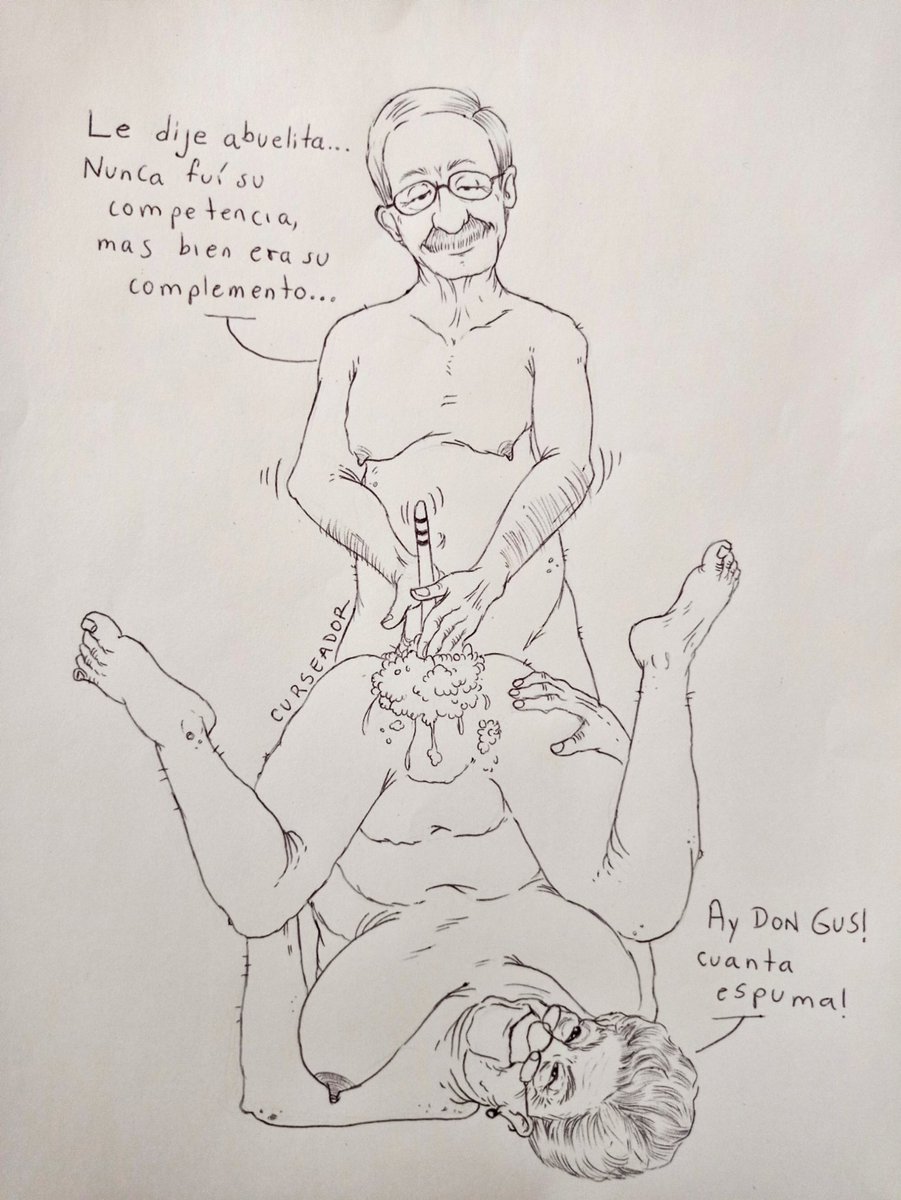 Le dije abuelita...
Nunca fuí su
competencia,
mas bien era su
complemento...
CURSEADOR
Ay DON GUS!
cuanta
espuma!